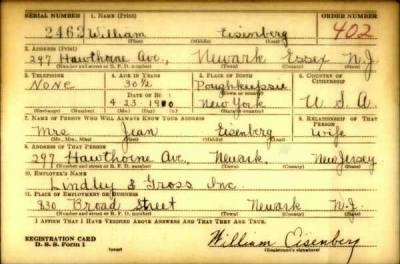 SERIAL NUMBER 1. NAME (Print) ORDER NUMBER
2462 William Eisenberg 402
(First) (Middle) (Last)
2. ADDRESS (Print)
297 Hawthorne Ave., Newark Essex N.J.
(Number and street or R. F. D. number) (Town) (County) (State)
3. TELEPHONE 4. AGE IN YEARS 5. PLACE OF BIRTH 6. COUNTRY OF CITIZENSHIP
None 30½ Poughkeepsie
DATE OF BIRTH (Town or county)
4-23-1910 New York U.S.A.
(Exchange) (Number) (Mo.) (Day) (Yr.) (State or country)
7. NAME OF PERSON WHO WILL ALWAYS KNOW YOUR ADDRESS 8. RELATIONSHIP OF THAT PERSON
Mrs. Jean Eisenberg Wife
(Mr., Mrs., Miss) (First) (Middle) (Last)
9. ADDRESS OF THAT PERSON
297 Hawthorne Ave., Newark, New Jersey
(Number and street or R. F. D. number) (Town) (County) (State)
10. EMPLOYER'S NAME
Lindley & Gross Inc.
11. PLACE OF EMPLOYMENT OR BUSINESS
930 Broad Street Newark N.J.
(Number and street or R. F. D. number) (Town) (County) (State)
I AFFIRM THAT I HAVE VERIFIED ABOVE ANSWERS AND THAT THEY ARE TRUE.
REGISTRATION CARD
D. S. S. Form 1 William Eisenberg
(Registrant's signature)